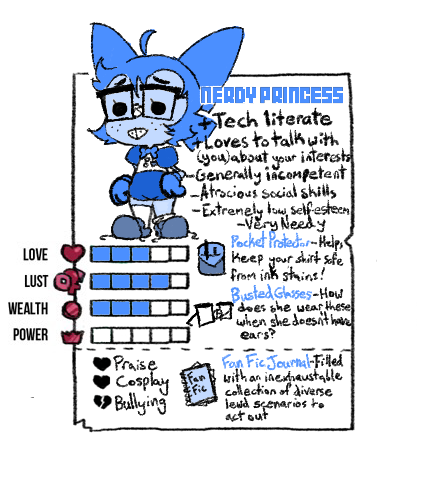 NERDY PRINCESS
+Tech literate
+Loves to talk with
(you) about your interests
-Generally incompetent
-Atrocious social skills
-Extremely low self-esteem
-Very Needy
LOVE
LUST
WEALTH
POWER
Pocket Protector-Helps
keep your shirt safe
from ink stains!
Busted Glasses-How
does she wear these
when she doesn't have
ears?
Praise
Cosplay
Bullying
Fan
Fic
Fan Fic Journal-Filled
with an inexhaustable
collection of diverse
lewd scenarios to
act out